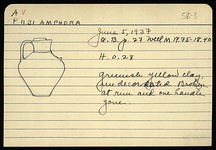 A 4
P 1131 AMPHORA
56-3
June 5, 1937
Q.B. p. 27 Well M 17.75-18.40
H. 0.28
greenish yellow clay,
undecorated Broken
at rim and one handle
gone.